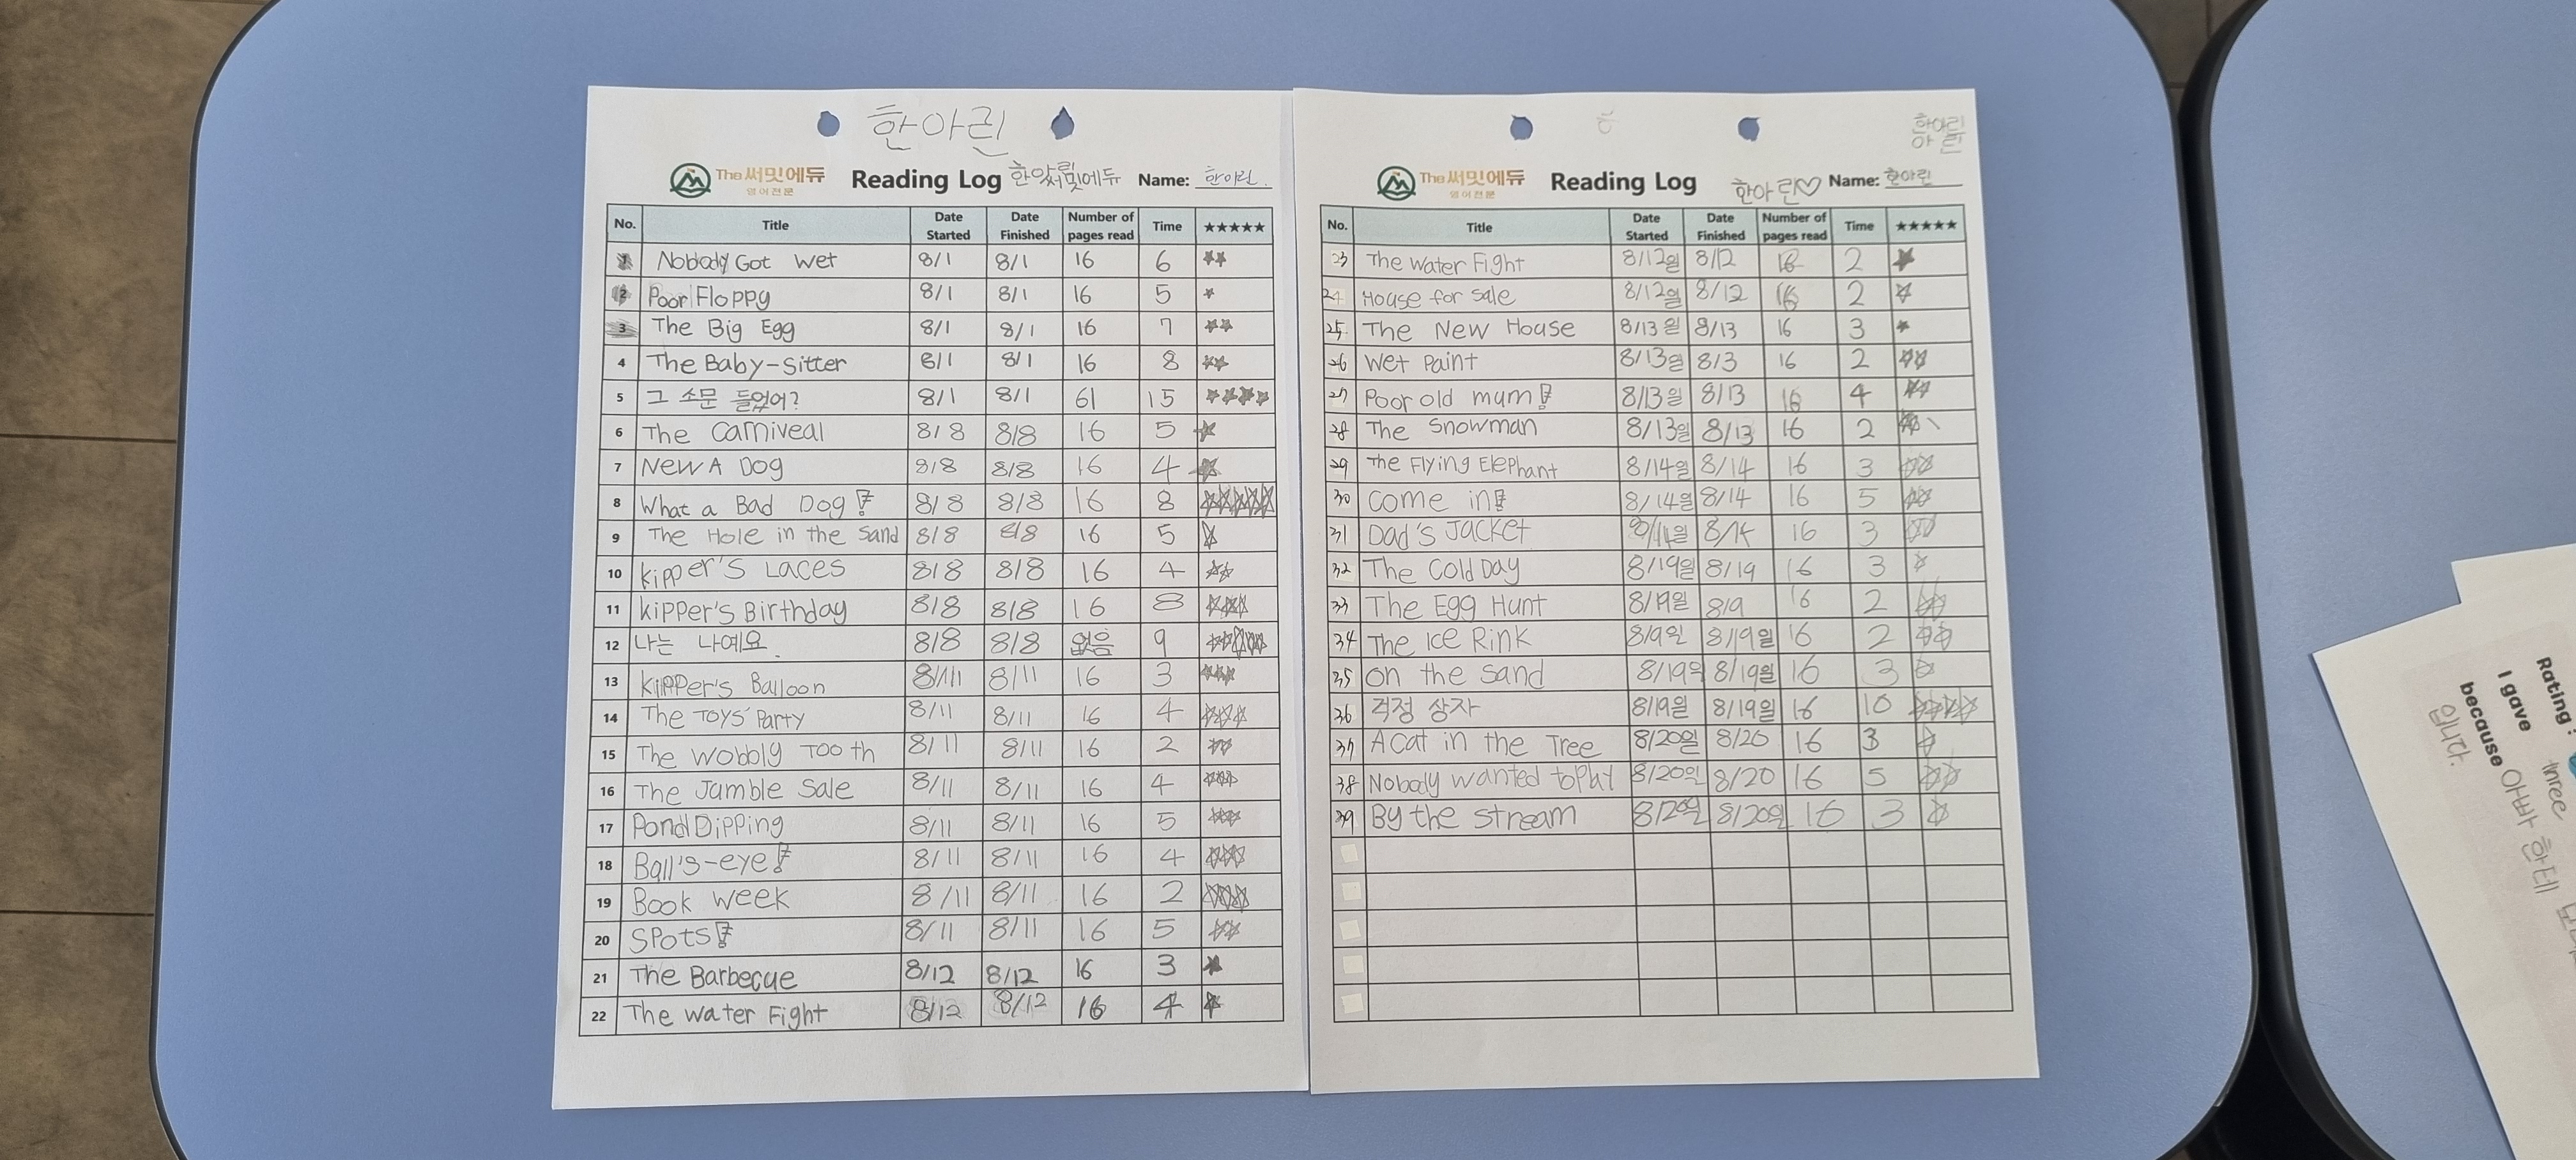 한아린
The써밋에듀
영어전문
Reading Log 한아린 써밋에듀 Name: 한아린
No. Title Date Started Date Finished Number of pages read Time ★★★★★
1 Nobody Got wet 8/1 8/1 16 6 ★★
2 Poor Floppy 8/1 8/1 16 5 ★
3 The Big Egg 8/1 8/1 16 7 ★★
4 The Baby-Sitter 8/1 8/1 16 8 ★★
5 그 소문 들었어? 8/1 8/1 61 15 ★★★★
6 The Carniveal 8/8 8/8 16 5 ★
7 New A Dog 8/8 8/8 16 4 ★
8 What a Bad Dog! 8/8 8/8 16 8 ★★★★★
9 The Hole in the Sand 8/8 8/8 16 5 ★
10 kipper's Laces 8/8 8/8 16 4 ★★
11 kipper's Birthday 8/8 8/8 16 8 ★★★
12 나는 나예요. 8/8 8/8 없음 9 ★★★★★
13 kipper's Balloon 8/11 8/11 16 3 ★★★
14 The Toys' Party 8/11 8/11 16 4 ★★★
15 The wobbly Tooth 8/11 8/11 16 2 ★★
16 The Jumble Sale 8/11 8/11 16 4 ★★★
17 Pond Dipping 8/11 8/11 16 5 ★★★
18 Bull's-eye! 8/11 8/11 16 4 ★★★
19 Book week 8/11 8/11 16 2 ★★★★
20 Spots! 8/11 8/11 16 5 ★★
21 The Barbecue 8/12 8/12 16 3 ★
22 The water Fight 8/12 8/12 16 4 ★
한아린
아린
The써밋에듀
영어전문
Reading Log 한아린♡ Name: 한아린
No. Title Date Started Date Finished Number of pages read Time ★★★★★
23 The water Fight 8/12일 8/12 16 2 ★
24 House for sale 8/12일 8/12 16 2 ★
25 The New House 8/13일 8/13 16 3 ★
26 wet paint 8/13일 8/3 16 2 ★★
27 Poor old mum! 8/13일 8/13 16 4 ★★
28 The Snowman 8/13일 8/13 16 2 ★★
29 The Flying Elephant 8/14일 8/14 16 3 ★★
30 come in! 8/14일 8/14 16 5 ★★
31 Dad's Jacket 8/14일 8/14 16 3 ★★
32 The Cold Day 8/19일 8/19 16 3 ★
33 The Egg Hunt 8/19일 8/9 16 2 ★★
34 The Ice Rink 8/9일 8/19일 16 2 ★★
35 on the sand 8/19일 8/19일 16 3 ★
36 걱정 상자 8/19일 8/19일 16 10 ★★★★
37 A cat in the Tree 8/20일 8/20 16 3 ★
38 Nobody wanted to 8/20일 8/20 16 5 ★★
39 By the stream 8/20일 8/20일 16 3 ★
Rating
I gave three
because 아빠 한테
입니다.